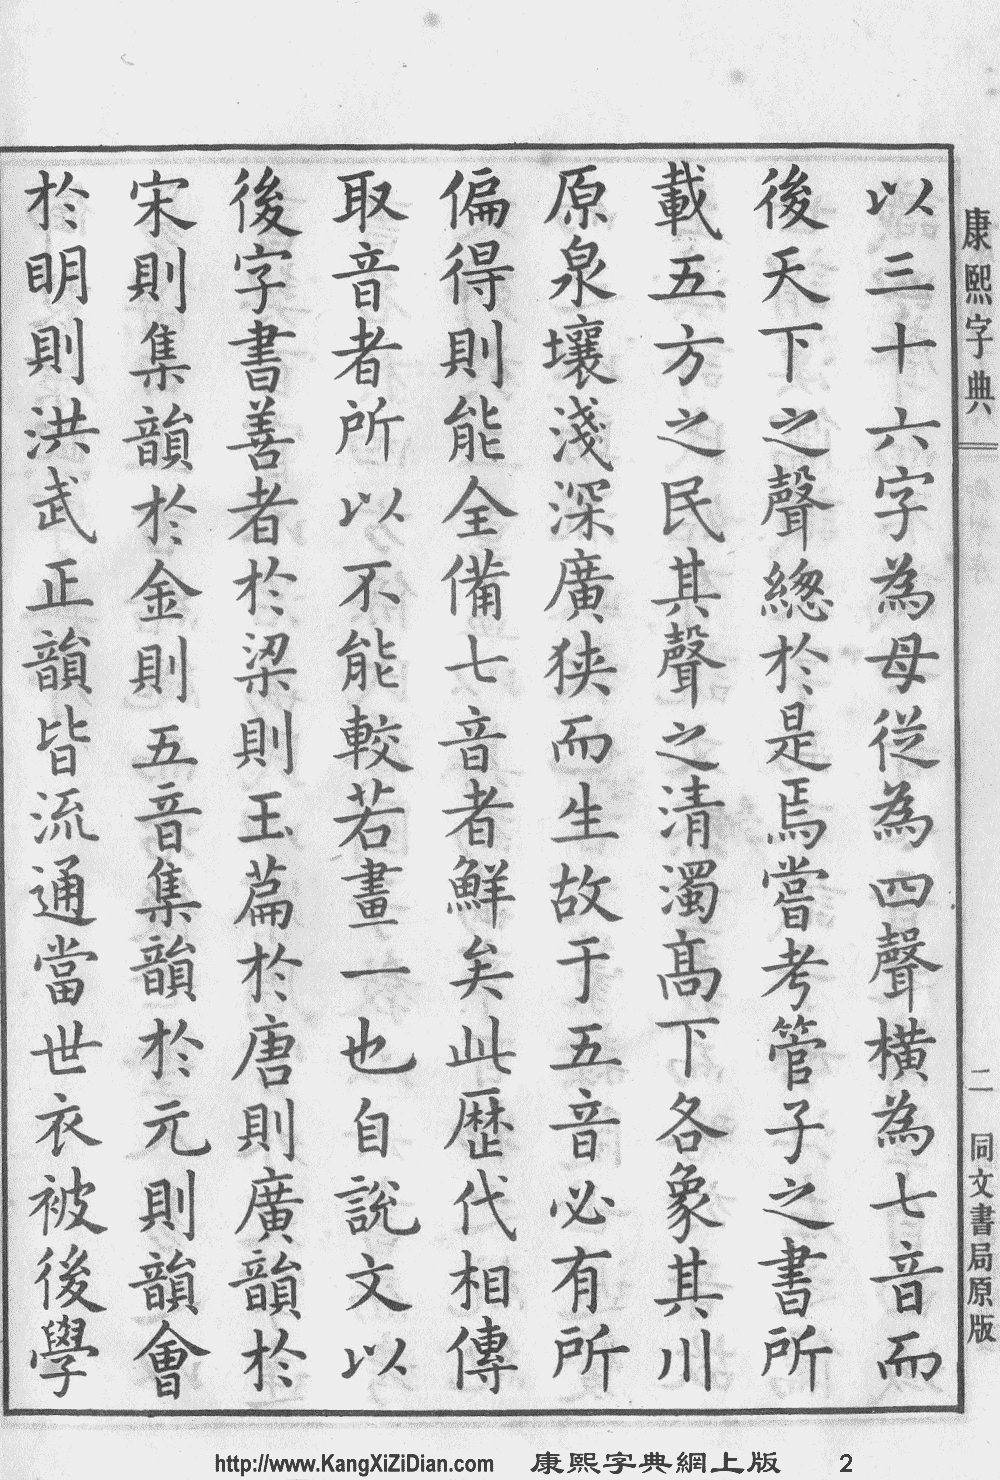 康熙字典
二
同文書局原版
以三十六字為母從為四聲橫為七音而
後天下之聲總於是焉嘗考管子之書所
載五方之民其聲之清濁高下各象其川
原泉壤淺深廣狹而生故于五音必有所
偏得則能全備七音者鮮矣此歷代相傳
取音者所以不能較若畫一也自說文以
後字書善者於梁則玉篇於唐則廣韻於
宋則集韻於金則五音集韻於元則韻會
於明則洪武正韻皆流通當世衣被後學
http://www.KangXiZiDian.com 康熙字典網上版 2